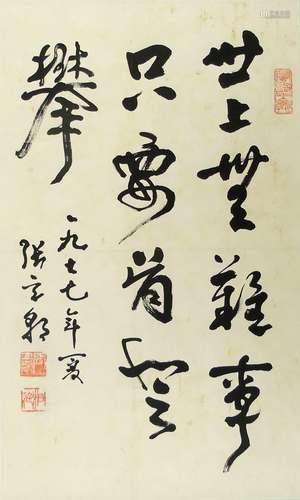 世上無難事
只要肯登
攀
一九七七年夏